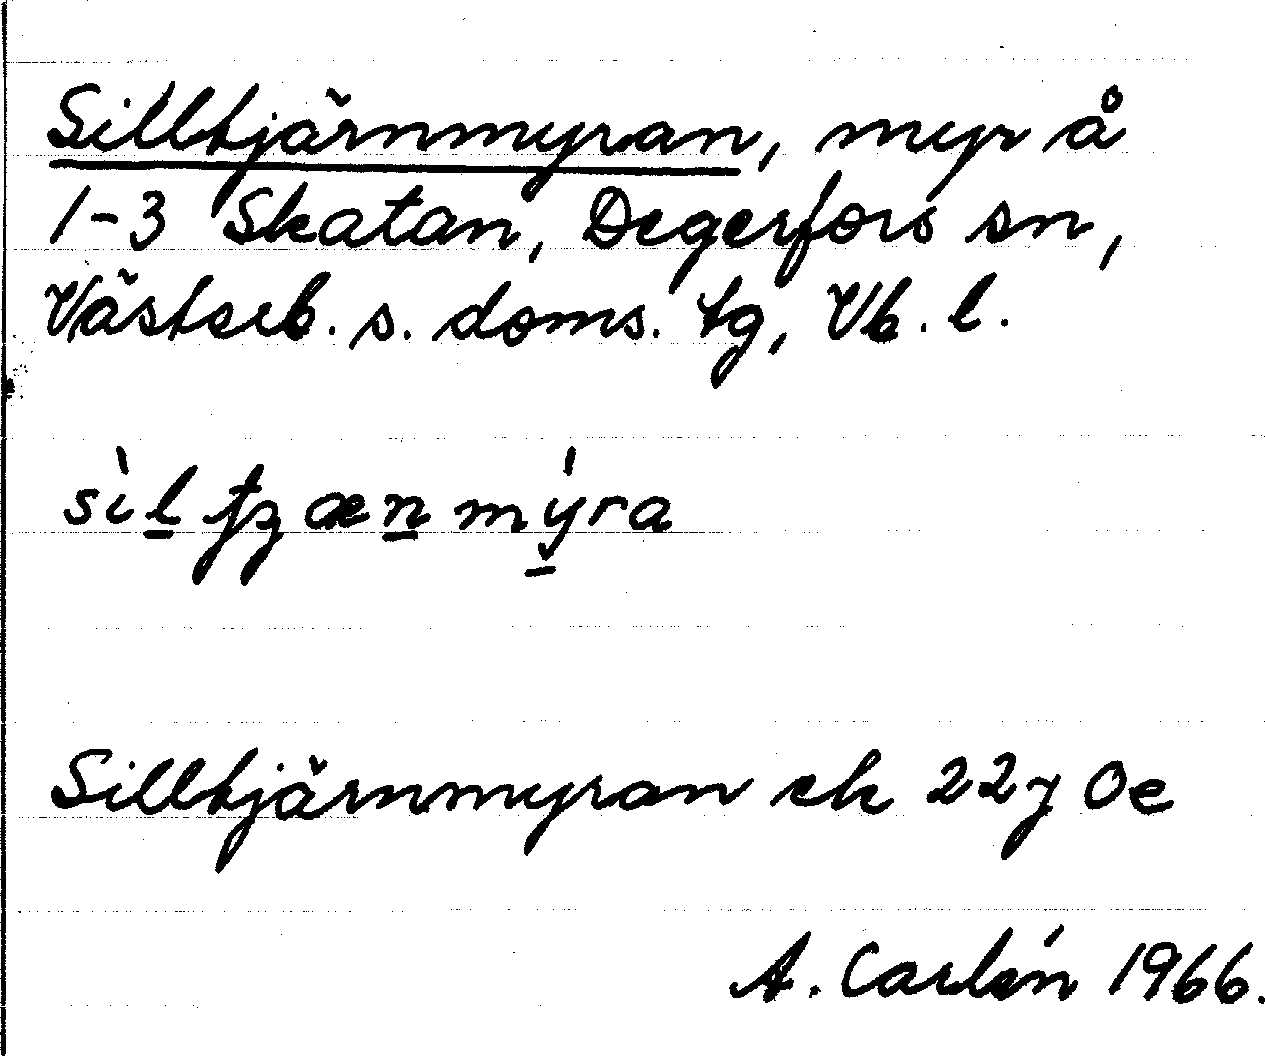 Silltjärnmyran, myr å
1-3 Skatan, Degerfors sn,
Västerb. s. doms. tg, Vb. l.
sìl̲ tʒæn̲mý̲ra
Silltjärnmyran ek 22 j 0e
A. Carlén 1966.